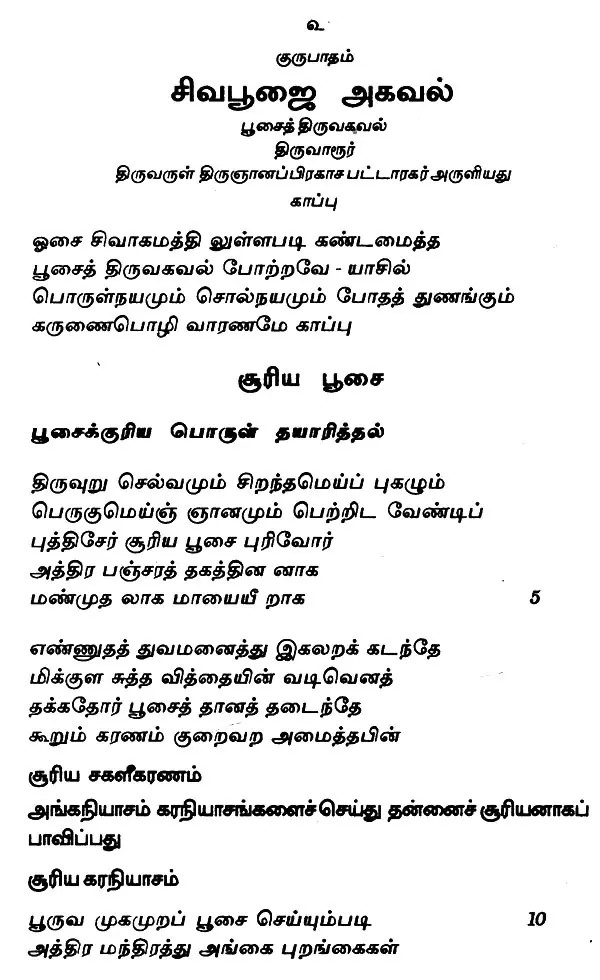 உ
குருபாதம்
சிவபூஜை அகவல்
பூசைத் திருவகவல்
திருவாரூர்
திருவருள் திருஞானப்பிரகாச பட்டாரகர் அருளியது
காப்பு
ஓசை சிவாகமத்தி லுள்ளபடி கண்டமைத்த
பூசைத் திருவகவல் போற்றவே - யாசில்
பொருள்நயமும் சொல்நயமும் போதத் துணங்கும்
கருணைபொழி வாரணமே காப்பு
சூரிய பூசை
பூசைக்குரிய பொருள் தயாரித்தல்
திருவுறு செல்வமும் சிறந்தமெய்ப் புகழும்
பெருகுமெய்ஞ் ஞானமும் பெற்றிட வேண்டிப்
புத்திசேர் சூரிய பூசை புரிவோர்
அத்திர பஞ்சரத் தகத்தின னாக
மண்முத லாக மாயையீ றாக 5
எண்ணுதத் துவமனைத்து இகலறக் கடந்தே
மிக்குள சுத்த வித்தையின் வடிவெனத்
தக்கதோர் பூசைத் தானத் தடைந்தே
கூறும் கரணம் குறைவற அமைத்தபின்
சூரிய சகளீகரணம்
அங்கநியாசம் கரநியாசங்களைச்செய்து தன்னைச் சூரியனாகப்
பாவிப்பது
சூரிய கரநியாசம்
பூருவ முகமுறப் பூசை செய்யும்படி 10
அத்திர மந்திரத்து அங்கை புறங்கைகள்